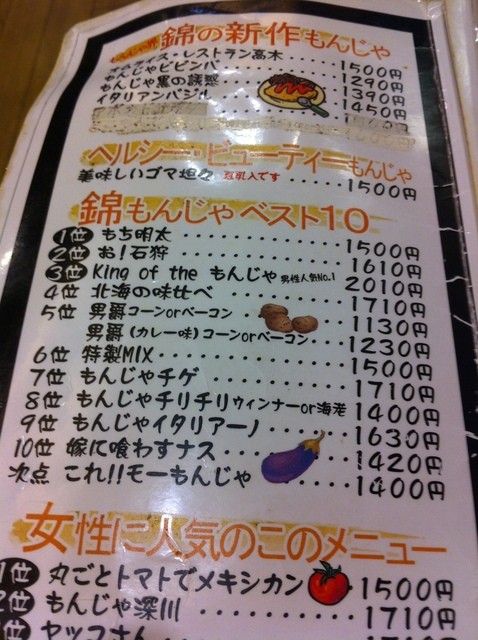 もんじゃ界 錦の新作もんじゃ
オムライス・レストラン高木・・・・1500円
もんじゃビビンバ・・・・1290円
もんじゃ黒の誘惑 1390円
イタリアンバジル 1450円
ヘルシー・ビューティーもんじゃ
美味しいゴマ坦々 豆乳入です ・・・・・・1500円
錦もんじゃベスト10
1位 もち明太・・・・・・・・・・1500円
2位 お!石狩・・・・・・・・・・1610円
3位 King of the もんじゃ 男性人気No.1 2010円
4位 北海の味比べ・・・・・・・1710円
5位 男爵コーンorベーコン 1130円
男爵(カレー味)コーンorベーコン・・・1230円
6位 特製MIX・・・・・・・・・・1500円
7位 もんじゃチゲ・・・・・・・・1710円
8位 もんじゃチリチリウィンナーor海老 1400円
9位 もんじゃイタリアーノ・・・・・1630円
10位 嫁に喰わすナス・・・・1420円
次点 これ!!モーもんじゃ・・・1400円
女性に人気のこのメニュー
1位 丸ごとトマトでメキシカン 1500円
2位 もんじゃ深川・・・・・・・・1710円
ヤッコさん